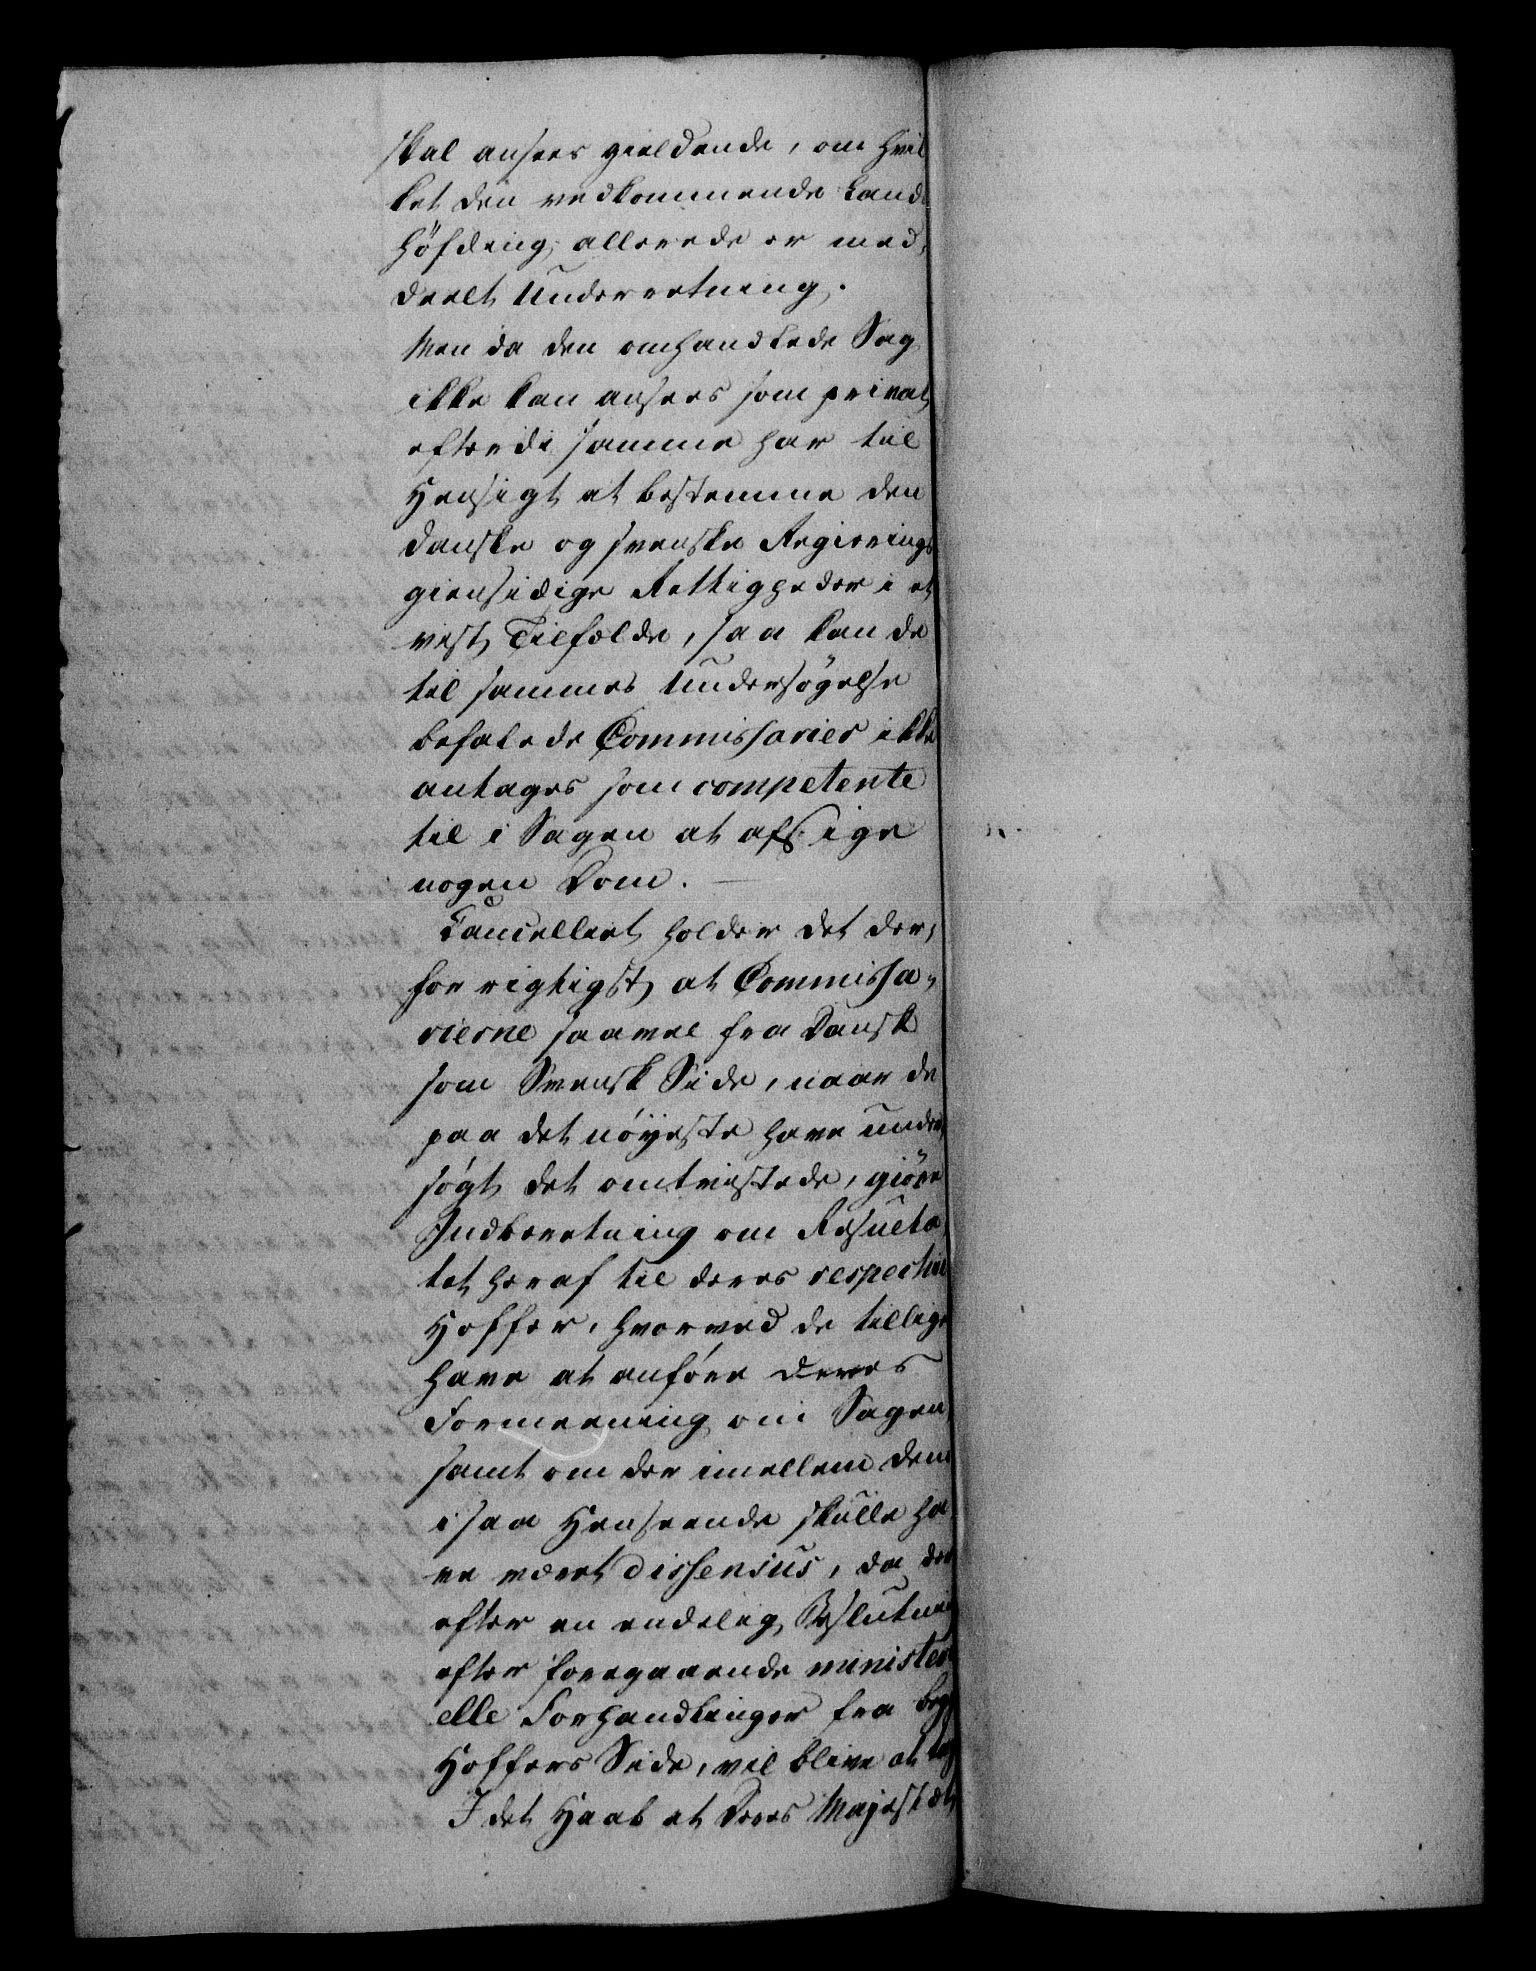 skal ansees gieldende, om hvil
ket den vedkommende Land
höfding allerede er med,
deelt Underretning.
Men da den omhandlede Sag
ikke kan ansees som privat,
efterdi samme har til
Hensigt at bestemme den
danske og svenske Regierings
giensidige Rettigheder i et
vist Tilfælde, saa kan de
til sammes Undersögelse
befalede Commissarier ikke
antages som competente
til i Sagen at afsige
nogen Dom.
Cancelliet holder det der,
for rigtigst, at Commissa,
rierne saavel fra Dansk
som Svensk Side, naar de
paa det nöyeste have under,
sögt det omtvistede, giöre
Indberetning om Resulta,
tet heraf til deres respective
Hoffer, hvorved de tillige
have at anföre deres
Formeening om Sagen
samt om der imellem dem
i saa Henseende skulle ha
ve været dissensus, da der
efter en endelig Beslutning
efter foregaaende ministeri
elle Forhandlinger fra begge
Hoffers Side, vil blive at tage
I det Haab at Deres Majestæt